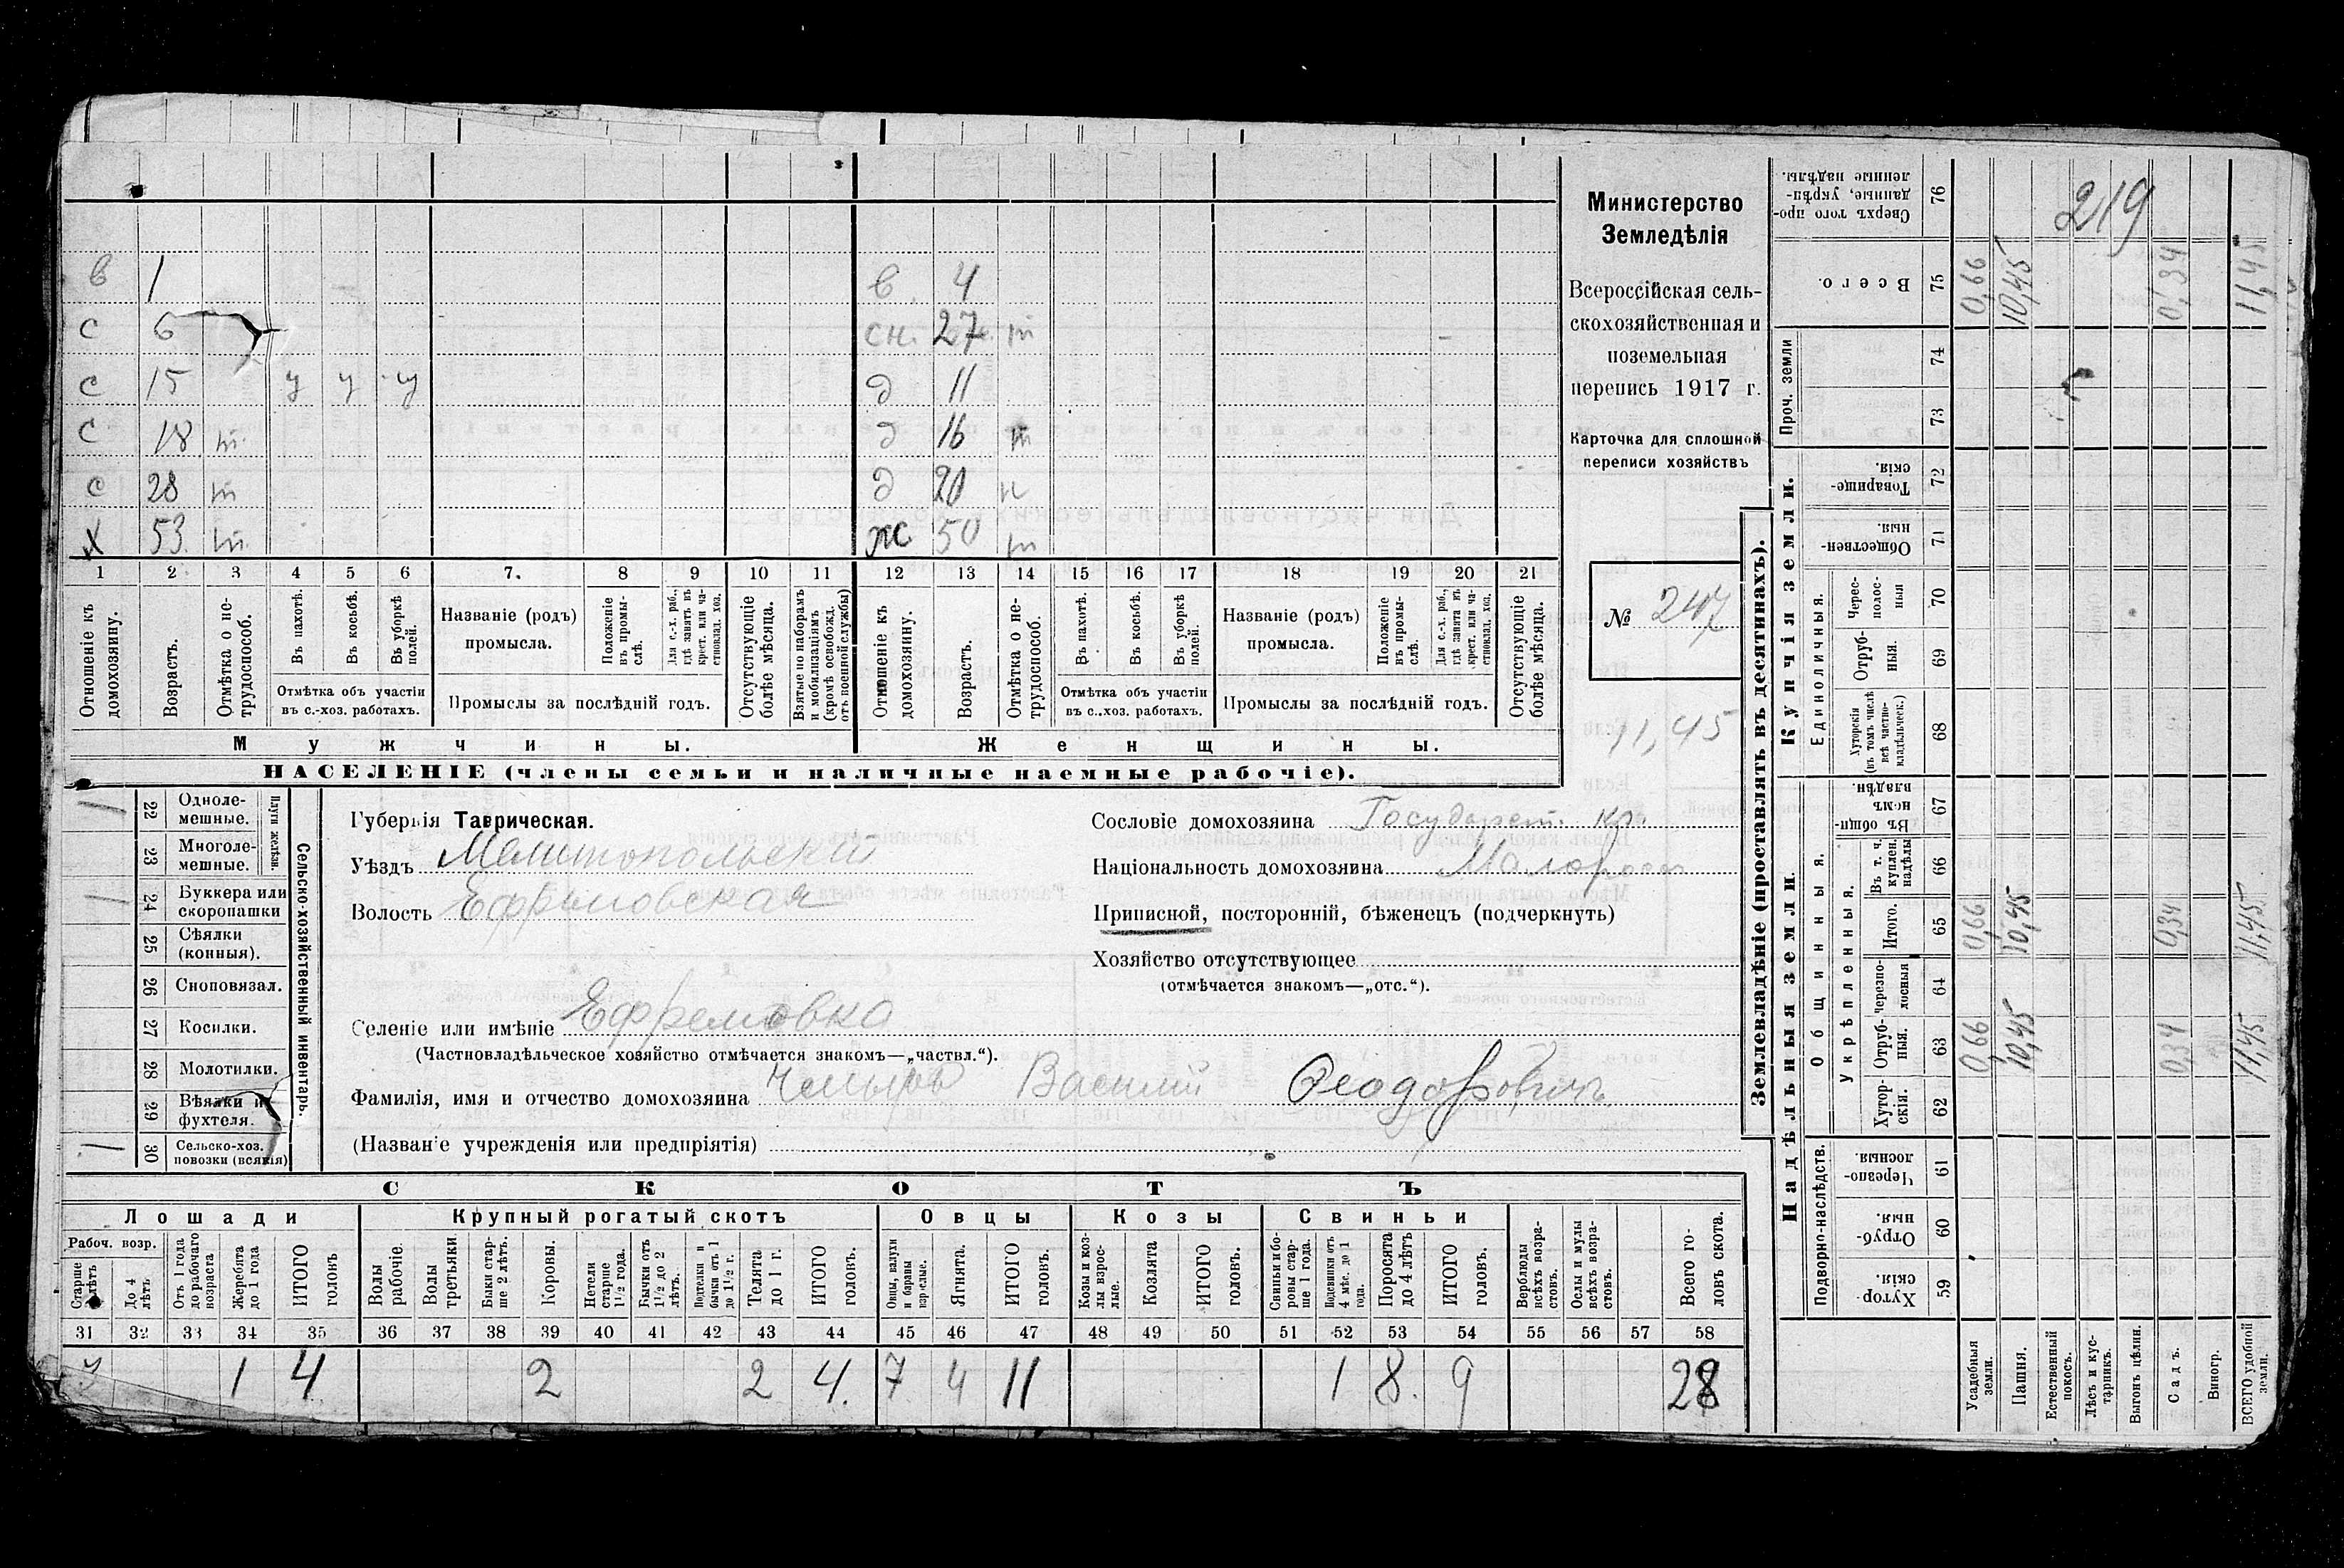 219
Министерство
Земледѣлія
Всероссійская сель-
скохозяйственная и
поземельная
перепись 1917 г.
Карточка для сплошной
переписи хозяйствъ
№ 247
11,45
в 1 в. 4
с 6 сн. 27 т
с 15 у у у д 11
с 18 т. д 16 т
с 28 т д 20 н
х 53. т. ж 50 т
1 2 3 4 5 6 7. 8 9 10 11 12 13 14 15 16 17 18 19 20 21
Отношеніе къ домохозяину.
Возрастъ.
Отмѣтка о не-трудоспособ.
Въ пахотѣ.
Въ косьбѣ.
Въ уборкѣ полей.
Отмѣтка объ участіи
въ с.-хоз. работахъ.
Названіе (родъ)
промысла.
Положеніе въ промы-слѣ.
Для с.-х. раб., гдѣ занятъ въ крест. или ча-стновлад. хоз.
Промыслы за послѣдній годъ.
Отсутствующіе болѣе мѣсяца.
Взятые по наборамъ и мобилизаціямъ (кромѣ освобожд. отъ военной службы)
Отношеніе къ домохозяину.
Возрастъ.
Отмѣтка о не-трудоспособ.
Въ пахотѣ.
Въ косьбѣ.
Въ уборкѣ полей.
Отмѣтка объ участіи
въ с.-хоз. работахъ.
Названіе (родъ)
промысла.
Положеніе въ промы-слѣ.
Для с.-х. раб., гдѣ занята въ крест. или ча-стновлад. хоз.
Промыслы за послѣдній годъ.
Отсутствующіе болѣе мѣсяца.
Мужчины. Женщины.
НАСЕЛЕНІЕ (члены семьи и наличные наемные рабочіе).
Сельско-хозяйственный инвентарь.
Плуги желѣзн.
22 Одноле-мешные.
23 Многоле-мешные.
24 Буккера или скоропашки
25 Сѣялки (конныя).
26 Сноповязал.
27 Косилки.
28 Молотилки.
29 Вѣялки и фухтеля.
30 Сельско-хоз. повозки (всякія)
Губернія Таврическая.
Уѣздъ Мелитопольский
Волость Ефремовская
Сословіе домохозяина Государст. кр.
Національность домохозяина Малоросс
Приписной, посторонній, бѣженецъ (подчеркнуть)
Хозяйство отсутствующее
(отмѣчается знакомъ—„отс.“).
Селеніе или имѣніе Ефремовка
(Частновладѣльческое хозяйство отмѣчается знакомъ—„частвл.“).
Фамилія, имя и отчество домохозяина Василий Феодорович
(Названіе учрежденія или предпріятія)
СКОТЪ
Лошади Крупный рогатый скотъ Овцы Козы Свиньи
Рабоч. возр.
Старше 4 лѣтъ
До 4 лѣтъ
Отъ 1 года до рабочаго возраста
Жеребята до 1 года
ИТОГО головъ
Волы рабочіе.
Волы третьяки.
Быки стар-ше 2 лѣтъ.
Коровы.
Нетели старше 1½ года.
Бычки отъ 1½ до 2 лѣтъ.
Подтелки и бычки отъ 1 до 1½ г.
Телята до 1 г.
ИТОГО головъ.
Овцы, валухи и бараны взрослые.
Ягнята.
ИТОГО головъ.
Козы и коз-лы взрос-лые.
Козлята
ИТОГО головъ.
Свиньи и бо-ровы стар-ше 1 года.
Подсвинки отъ 4 мѣс. до 1 года.
Поросята до 4 лѣтъ
ИТОГО головъ.
Верблюды всѣхъ возра-стовъ.
Ослы и мулы всѣхъ возра-стовъ.
Всего го-ловъ скота.
31 32 33 34 35 36 37 38 39 40 41 42 43 44 45 46 47 48 49 50 51 52 53 54 55 56 57 58
1 4 2 2 4. 7 4 11 1 8. 9 28
Землевладѣніе (проставлять въ десятинахъ).
Надѣльныя земли. Купчія земли.
Подворно-наслѣдств.
Общинныя.
Укрѣпленныя.
Единоличныя.
Проч. земли
59 Хутор-скія.
60 Отруб-ныя.
61 Черезпо-лосныя.
62 Хутор-скія.
63 Отруб-ныя.
64 Черезпо-лосныя
65 Итого.
66 Въ т. ч. куплен. надѣлы
67 Въ общи-номъ владѣн.
68 Хуторскія (въ томъ числѣ всѣ частно-владѣльческ.)
69 Отруб-ныя.
70 Черес-полос-ныя
71 Обществен-ныя.
72 Товарище-скія.
73
74
75 Всего.
76 Сверхъ того про-данные, укрѣп-ленные надѣлы.
Усадебныя земли. 0,66 0,66 0,66
Пашня. 10,45 10,45 10,45
Естественный покосъ.
Лѣсъ и кус-тарникъ.
Выгонъ цѣлин.
Садъ. 0,34 0,34 0,34
Виногр.
ВСЕГО удобной земли. 11,45 11,45 11,45